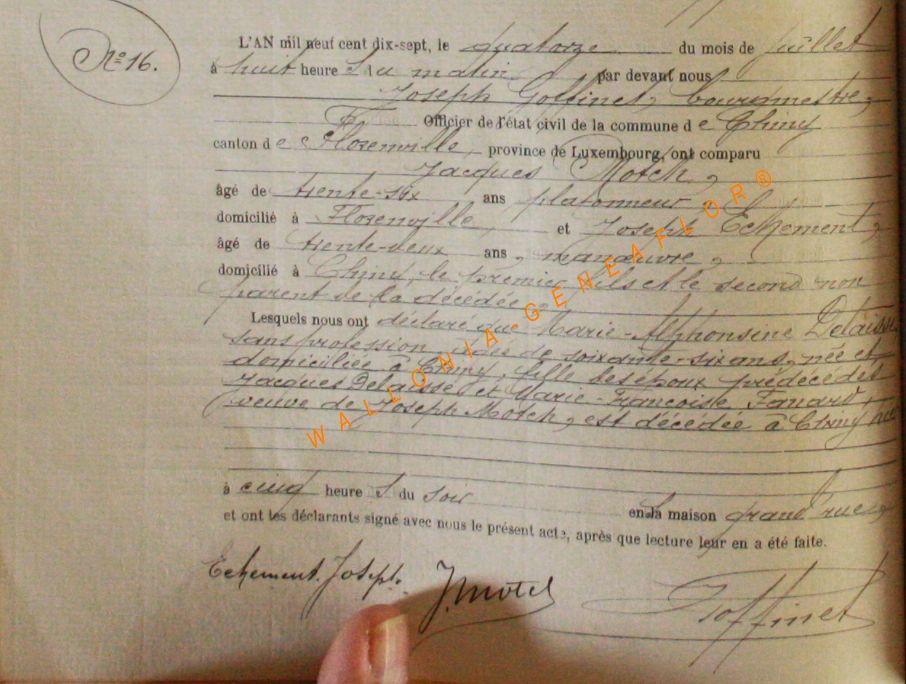 Nº 16.
L'AN mil neuf cent dix-sept, le quatorze du mois de juillet
à huit heures du matin par devant nous
Joseph Goffinet, bourgmestre,
Officier de l'état civil de la commune de Chiny
canton de Florenville, province de Luxembourg, ont comparu
Jacques Motch,
âgé de trente-six ans plafonneur
domicilié à Florenville, et Joseph Echement,
âgé de trente-deux ans, manœuvre,
domicilié à Chiny, le premier fils et le second non
parent de la décédée
Lesquels nous ont déclaré que Marie-Alphonsine Delaisse
sans profession, âgée de soixante-six ans, née et
domiciliée à Chiny, fille des époux prédécédés
Jacques Delaisse et Marie-Françoise
veuve de Joseph Motch, est décédée à Chiny
à cinq heures du soir
en sa maison grand'rue,
et ont les déclarants signé avec nous le présent acte, après que lecture leur en a été faite.
Echement Joseph. J. Motch Goffinet
WALLONIA GENEAFLOR®